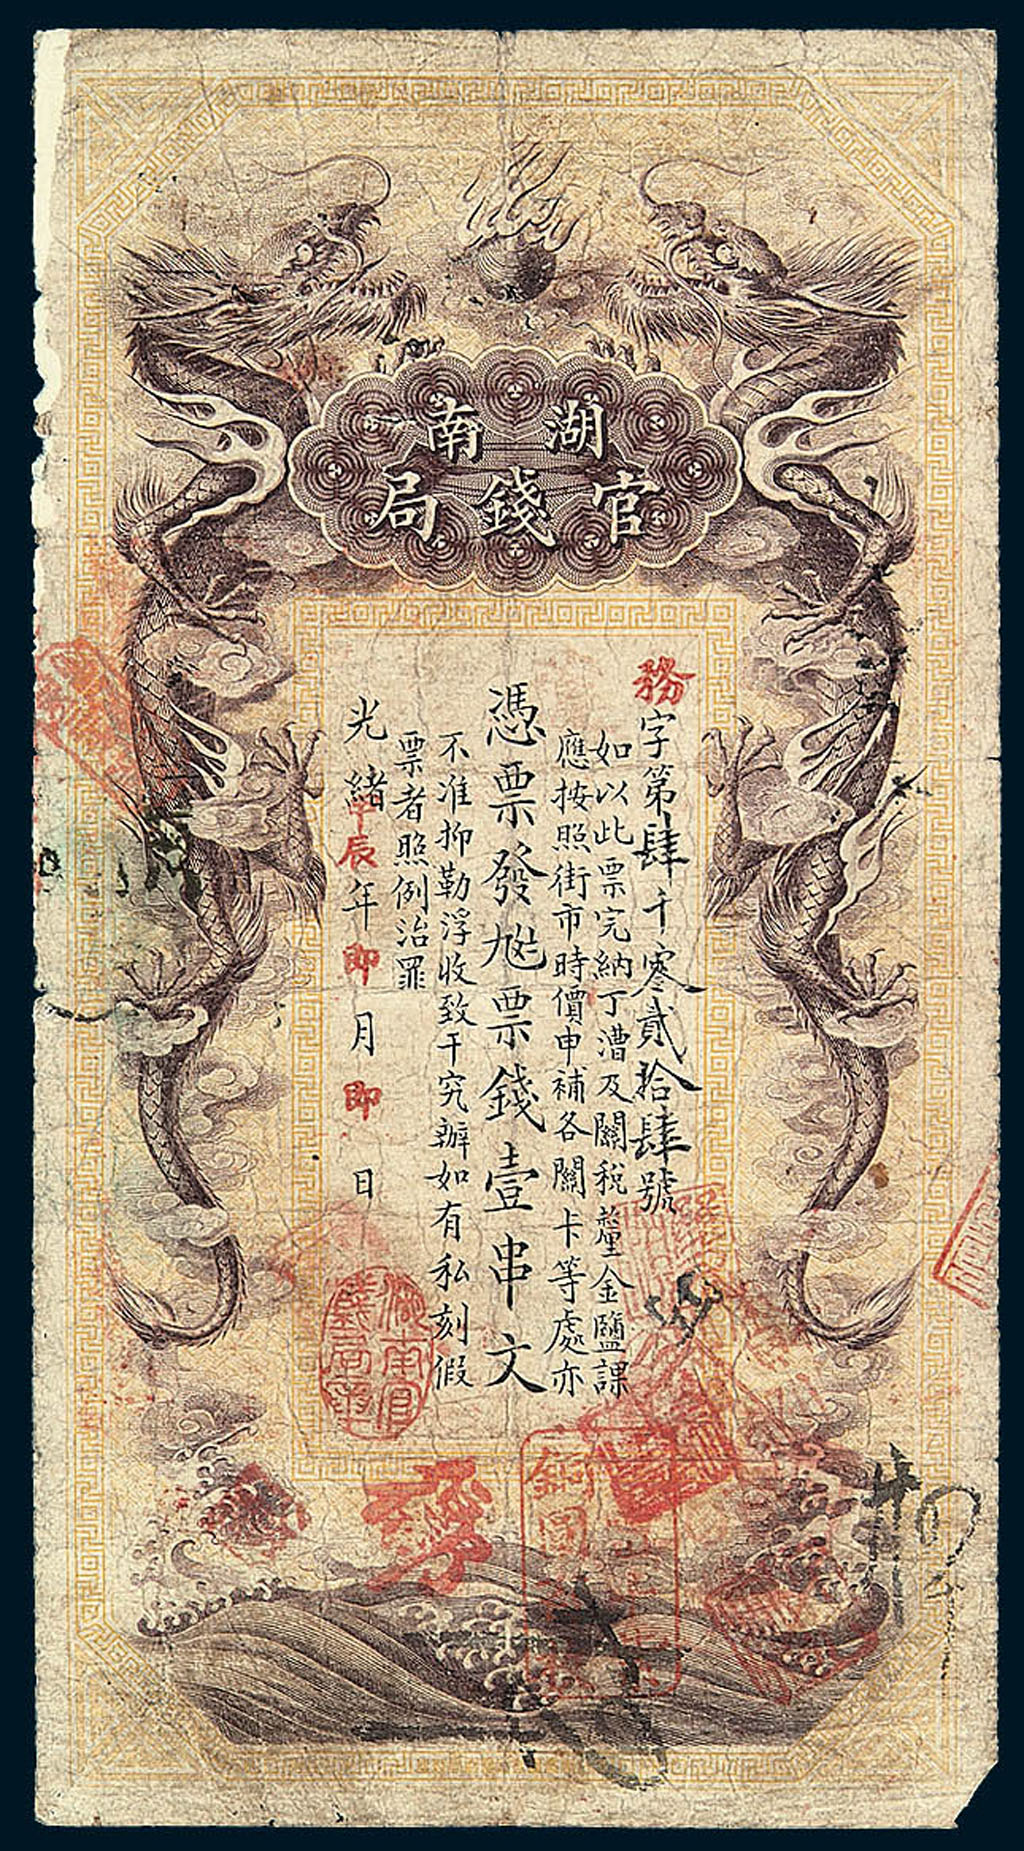 湖南
官錢局
務字第肆千零貳拾肆號
如以此票完納丁漕及關稅釐金鹽課
應按照街市時價申補各關卡等處亦
憑票發尨票錢壹串文
不准抑勒浮收致干究辦如有私刻假
票者照例治罪
光緒甲辰年即月即日